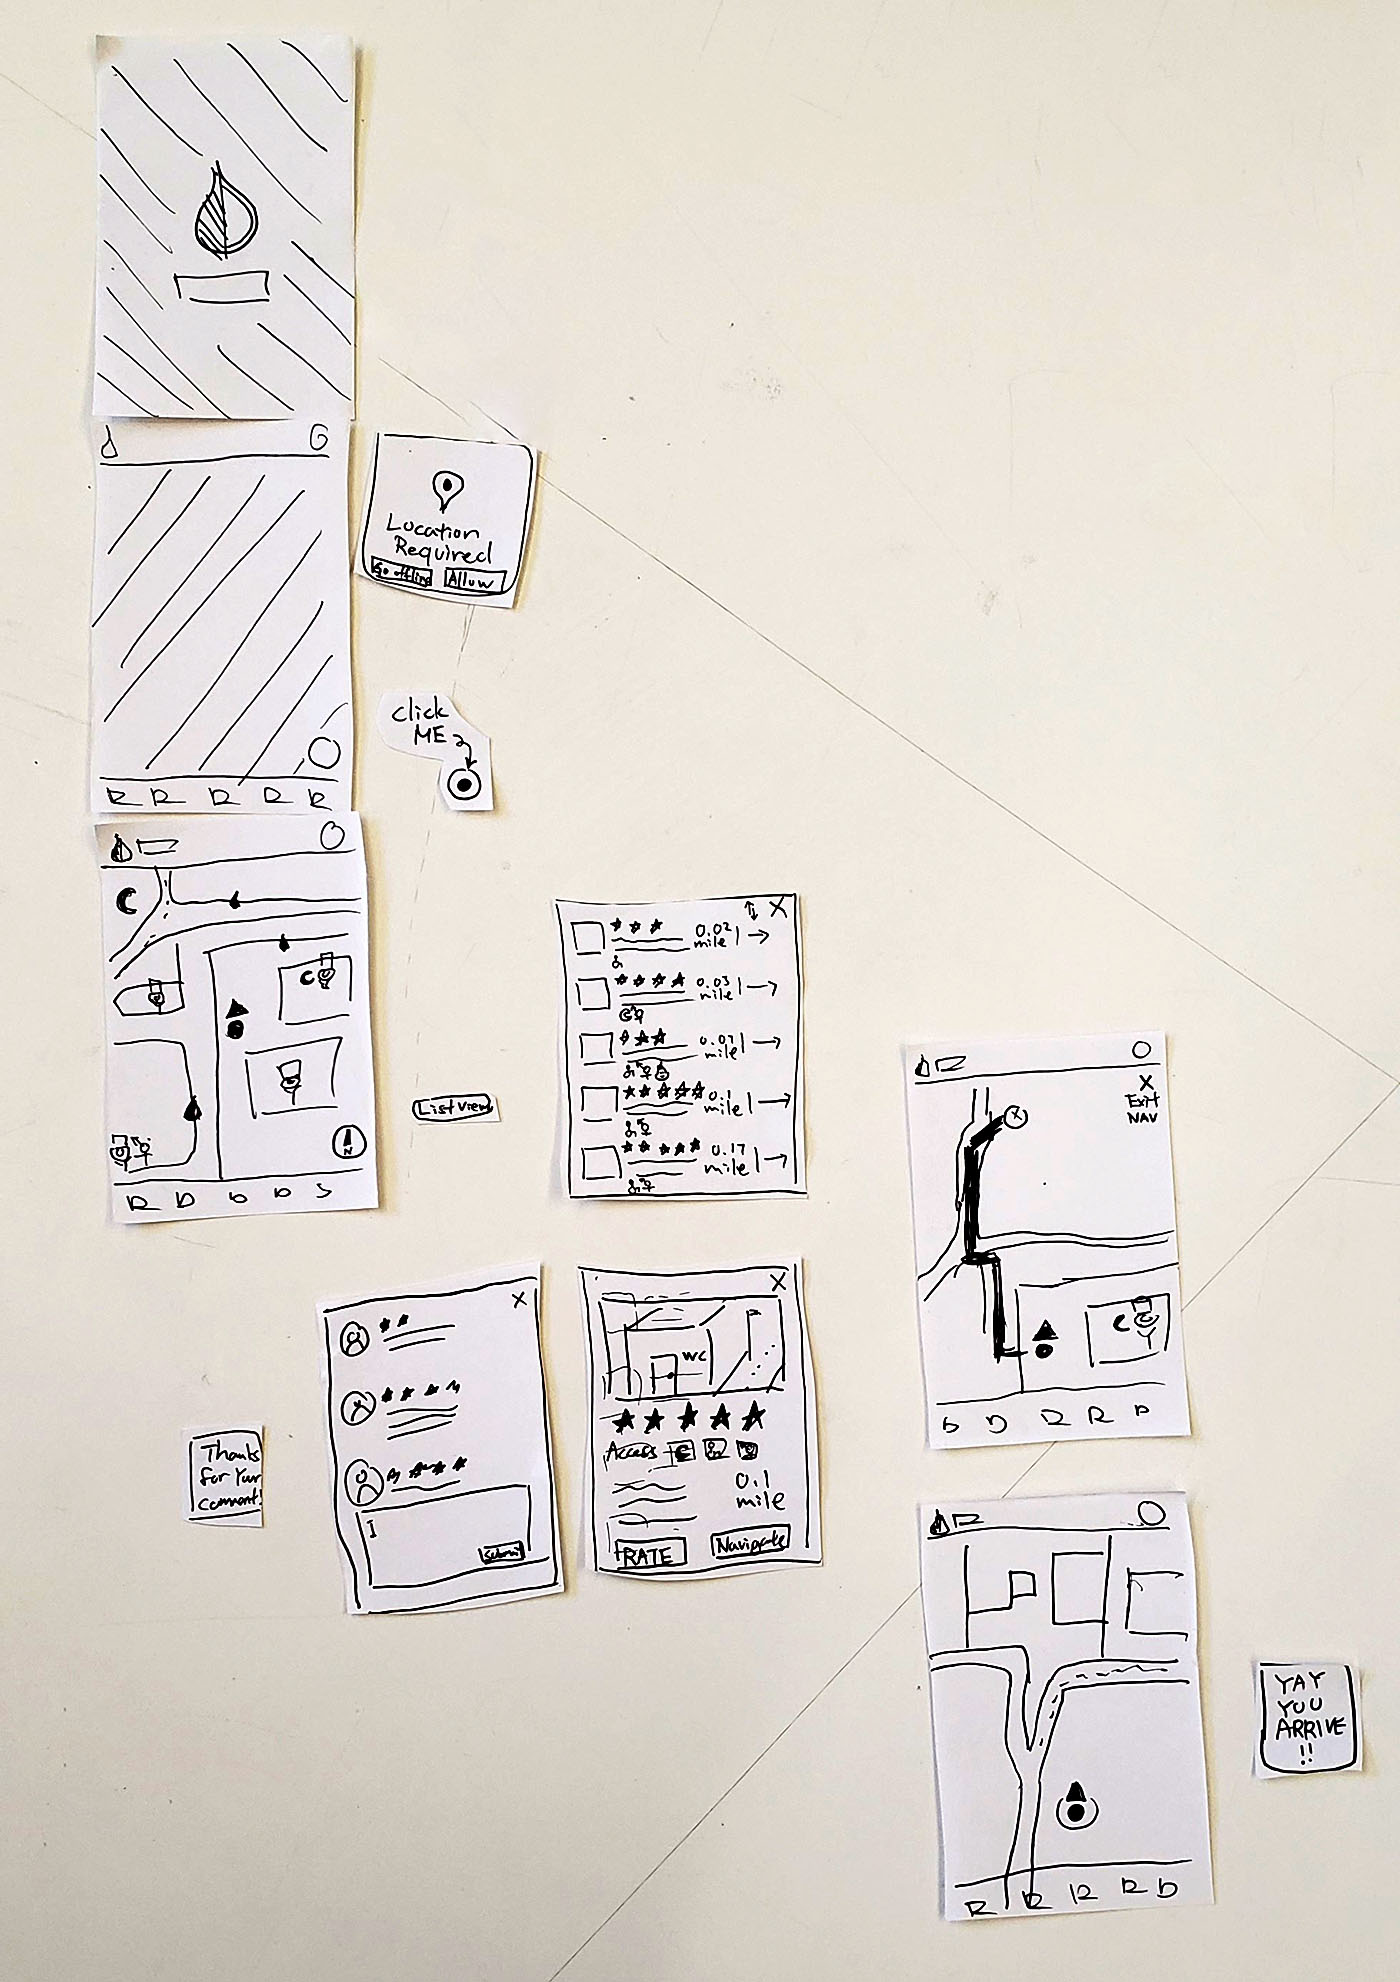 Location
Required
Go offline
Allow
Click
ME
List View
0.02
mile
0.03
mile
0.07
mile
0.1
mile
0.17
mile
X
Exit
NAV
N
X
Submit
X
WC
Access
0.1
mile
RATE
Navigate
Thanks
for Your
comment!
YAY
YOU
ARRIVE
!!